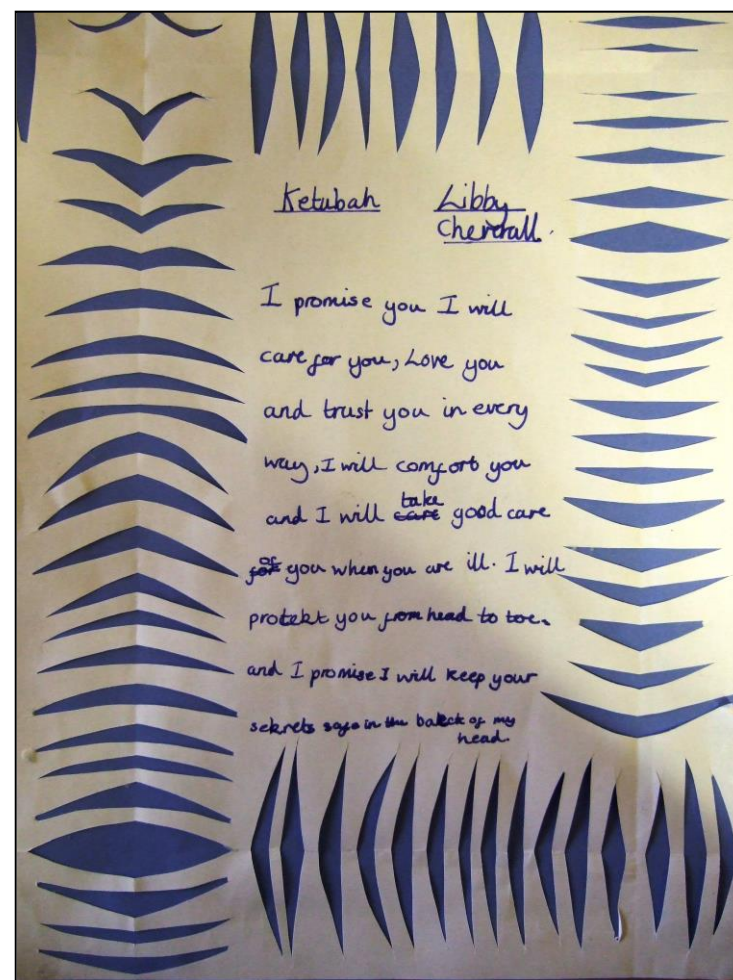 Ketubah Libby
Cherrall.
I promise you I will
care for you, Love you
and trust you in every
way, I will comfort you
and I will care take good care
for of you when you are ill. I will
protekt you from head to toe.
and I promise I will keep your
sekrets safe in the back of my
head.